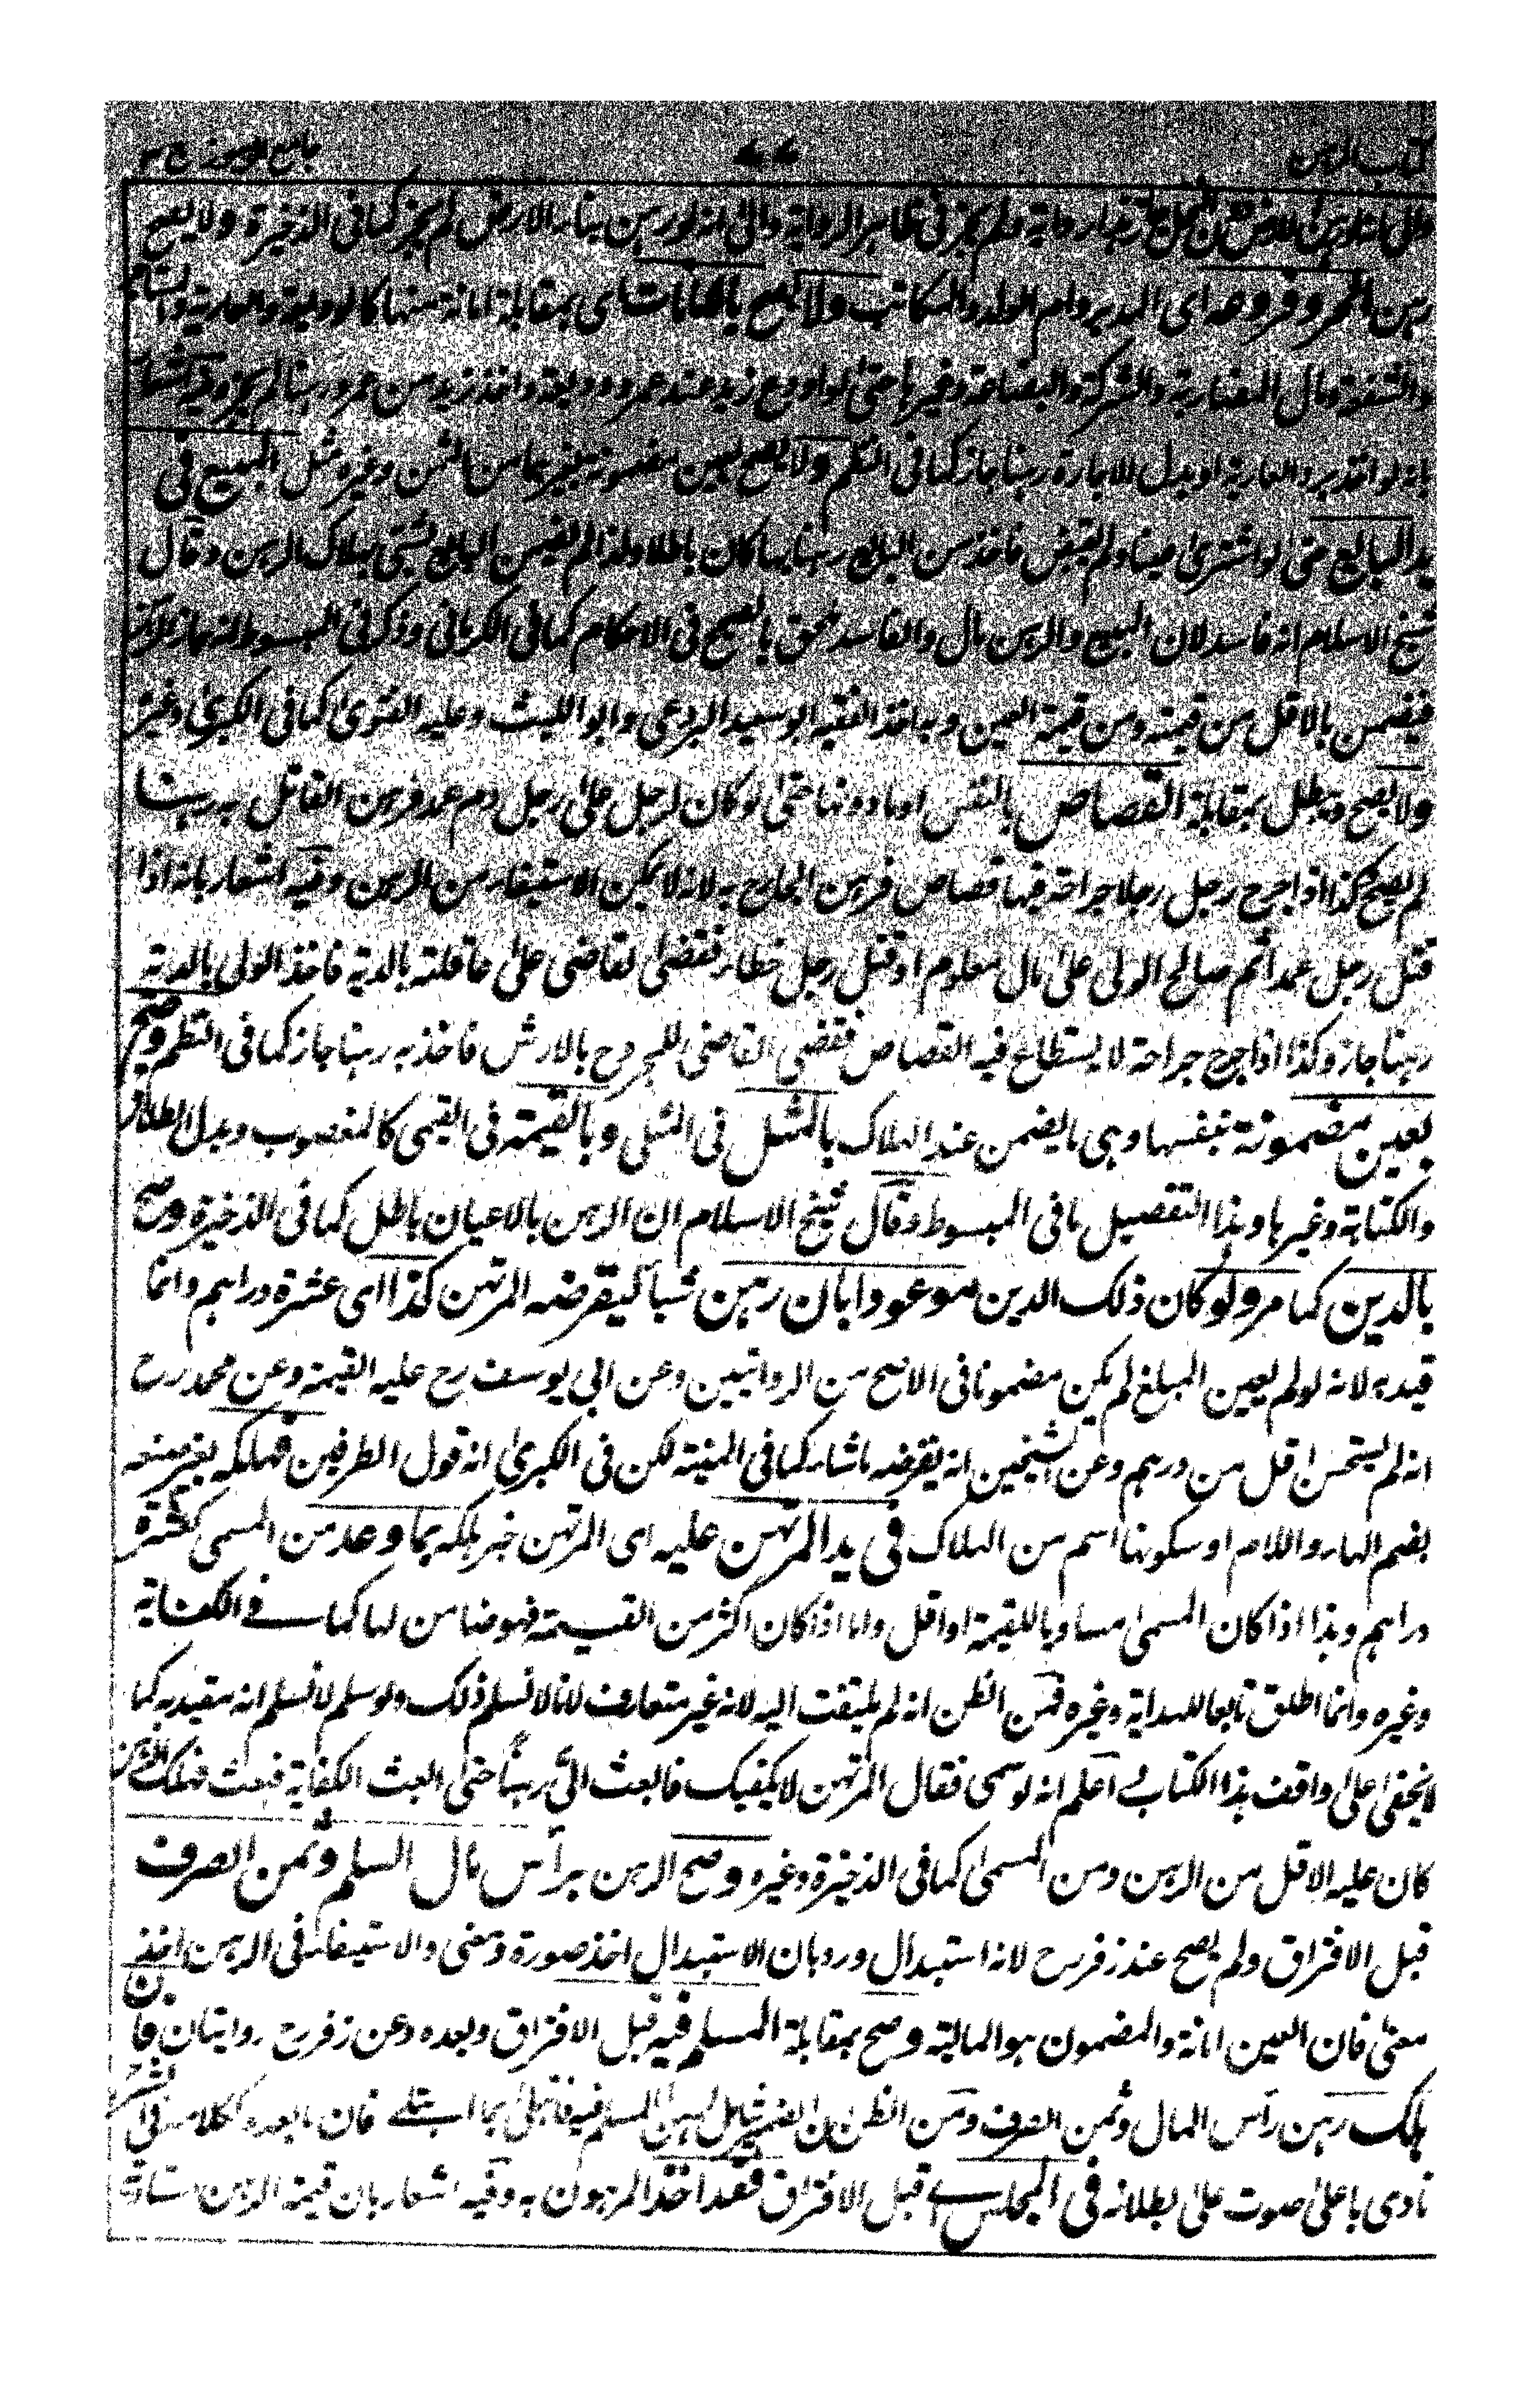 كتاب الرهن ٧٧ جامع الرموز ج ٣
في ظاهر الرواية والى انه لو رهن بناء الارض لم يجز كما في الذخيرة ولا يصح
رهن الحر وفروعه اى المدبر وام الولد والمكاتب ولا يصح بالامانات اى بمقابلة امانة منها كالوديعة والعارية
والشفعة ومال المضاربة والشركة والبضاعة وغيرها حتى لو اودع زيد عند عمرو وديعة واخذ زيد من عمرو رهنا لم يجز وفيه اشعار
بانه لو اخذ برد العارية او بدل الاجارة رهنا جاز كما في النظم ولا يصح بعين مضمونة بغيرها من الثمن وغيره مثل المبيع في
يد البائع حتى لو اشترى عينا ولم يقبض فاخذ من البائع رهنا بها كان باطلا ولذا لم يضمن البائع بشئ بهلاك الرهن وقال
شيخ الاسلام انه فاسد لان المبيع والرهن مال والفاسد يلحق بالصحيح في الاحكام كما في الكرماني وذكر في المبسوط انه جاز الرهن
فيضمن بالاقل من قيمته ومن قيمة العين وبه اخذ الفقيه ابو سعيد البردعى وابو الليث وعليه الفتوى كما في الكبرى وغيره
ولا يصح وبطل بمقابلة القصاص بالنفس او ما دونها حتى لو كان لرجل على رجل دم عمد فرهن القاتل به رهنا
لم يصح كذا اذا جرح رجل رجلا جراحة فيها قصاص فرهن الجارح به لانه لا يمكن الاستيفاء من الرهن وفيه اشعار بانه اذا
قتل رجل عمدا ثم صالح الولى على مال معلوم او قتل رجل خطاء فقضى لقاضى على عاقلته بالدية فاخذ الولى بالدية
رهنا جاز وكذا اذا جرح جراحة لا يستطاع فيه القصاص فقضى القاضى للمجروح بالارش فاخذ به رهنا جاز كما في النظم وصح
بعين مضمونة بنفسها وهى ما يضمن عند الهلاك بالمثل في المثلى وبالقيمة في القيمى كالمغصوب وبدل الطلاق
والكتابة وغيرها وهذا التفصيل ما في المبسوط وقال شيخ الاسلام ان الرهن بالاعيان باطل كما في الذخيرة وصح
بالدين كما مر ولو كان ذلك الدين موعودا بان رهن شيأ ليقرضه المرتهن كذا اى عشرة دراهم وانما
قيد به لانه لو لم يعين المبلغ لم يكن مضمونا في الاصح من الروايتين وعن ابى يوسف رح عليه القيمة وعن محمد رح
انه لم يستحسن اقل من درهم وعن الشيخين انه يقرضه ما شاء كما في المنية لكن في الكبرى انه قول الطرفين فهلكه بغير صنعه
بضم الهاء واللام او سكونها اسم من الهلاك في يد المرتهن عليه اى المرتهن خبر هلكه بما وعد من المسمى كعشرة
دراهم وهذا اذا كان المسمى مساويا للقيمة او اقل واما اذا كان اكثر من القيمة فهو ضامن لها كما في الكفاية
وغيره وانما اطلق تابعا للهداية وغيره فمن الظن انه لم يلتفت اليه لانه غير متعارف لانا لا نسلم ذلك ولو سلم لا نسلم انه مقيد به كما
لا يخفى على واقف هذا الكتاب اعلم انه لو سمى فقال المرتهن لا يكفيك فابعث الىّ رهناً حتى ابعث الكفاية فبعث فهلك الرهن
كان عليه الاقل من الرهن ومن المسمى كما في الذخيرة وغيره وصح الرهن برأس مال السلم وثمن الصرف
قبل الافتراق ولم يصح عند زفر رح لانه استبدال ورد بان الاستبدال اخذ صورة ومعنى والاستيفاء في الرهن اخذ
معنى فان العين امانة والمضمون هو المالية وصح بمقابلة المسلم فيه قبل الافتراق وبعده وعن زفر رح روايتان فان
هلك رهن رأس المال وثمن الصرف ومن الظن ان الضمير شامل لرهن المسلم فيه فابتلى بما ابتلى فان ما بعده كلامه
نادى باعلى صوت على بطلانه في المجلس اى قبل الافتراق فقد اخذ المرهون به وفيه اشعار بان قيمة الرهن